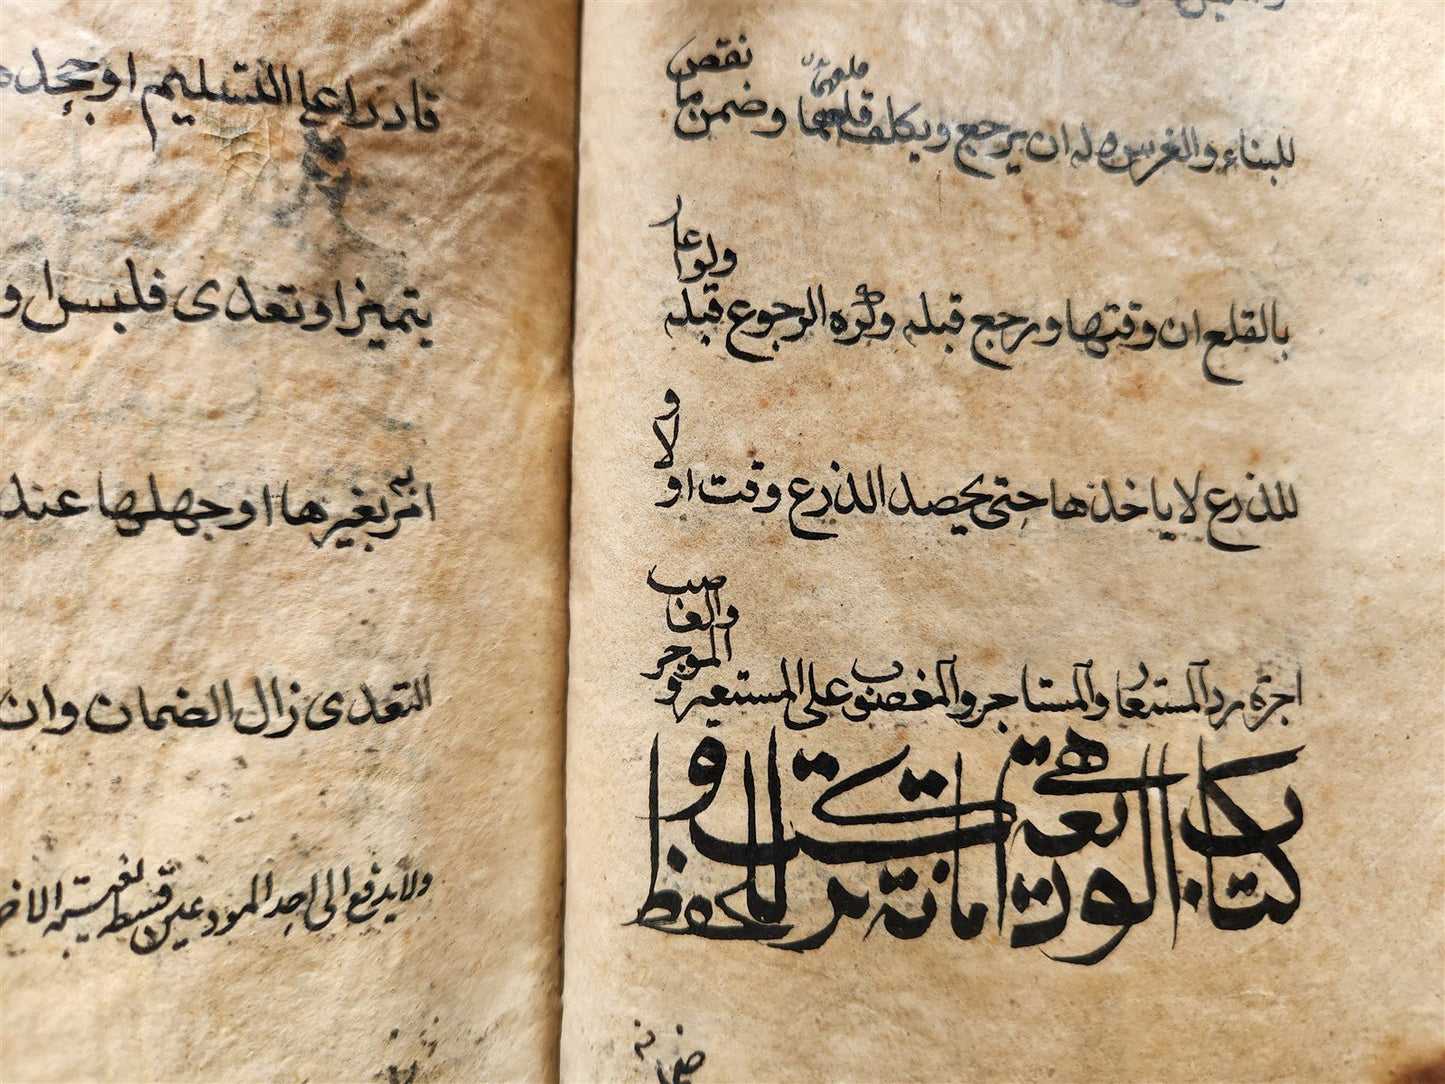 للبناء والغرس وله ان يرجع ويكلف قلعهما وضمن ما نقص
بالقلع ان وقتها ورجع قبله وكره الرجوع قبله ولو اعا
للذرع لا ياخذها حتى يحصد الذرع وقت او لا و
اجرة رد المستعار والمستاجر والمغصوب على المستعير والموجر والغاصب
كتاب الوديعة هي امانة تركت للحفظ و
قادرا على التسليم او جحده
يتميز او تعدى فلبس او
امر بغيرها او جهلها عند
التعدى زال الضمان وان
ولا يدفع الى احد المودعين قسطه لغيبة الاخر